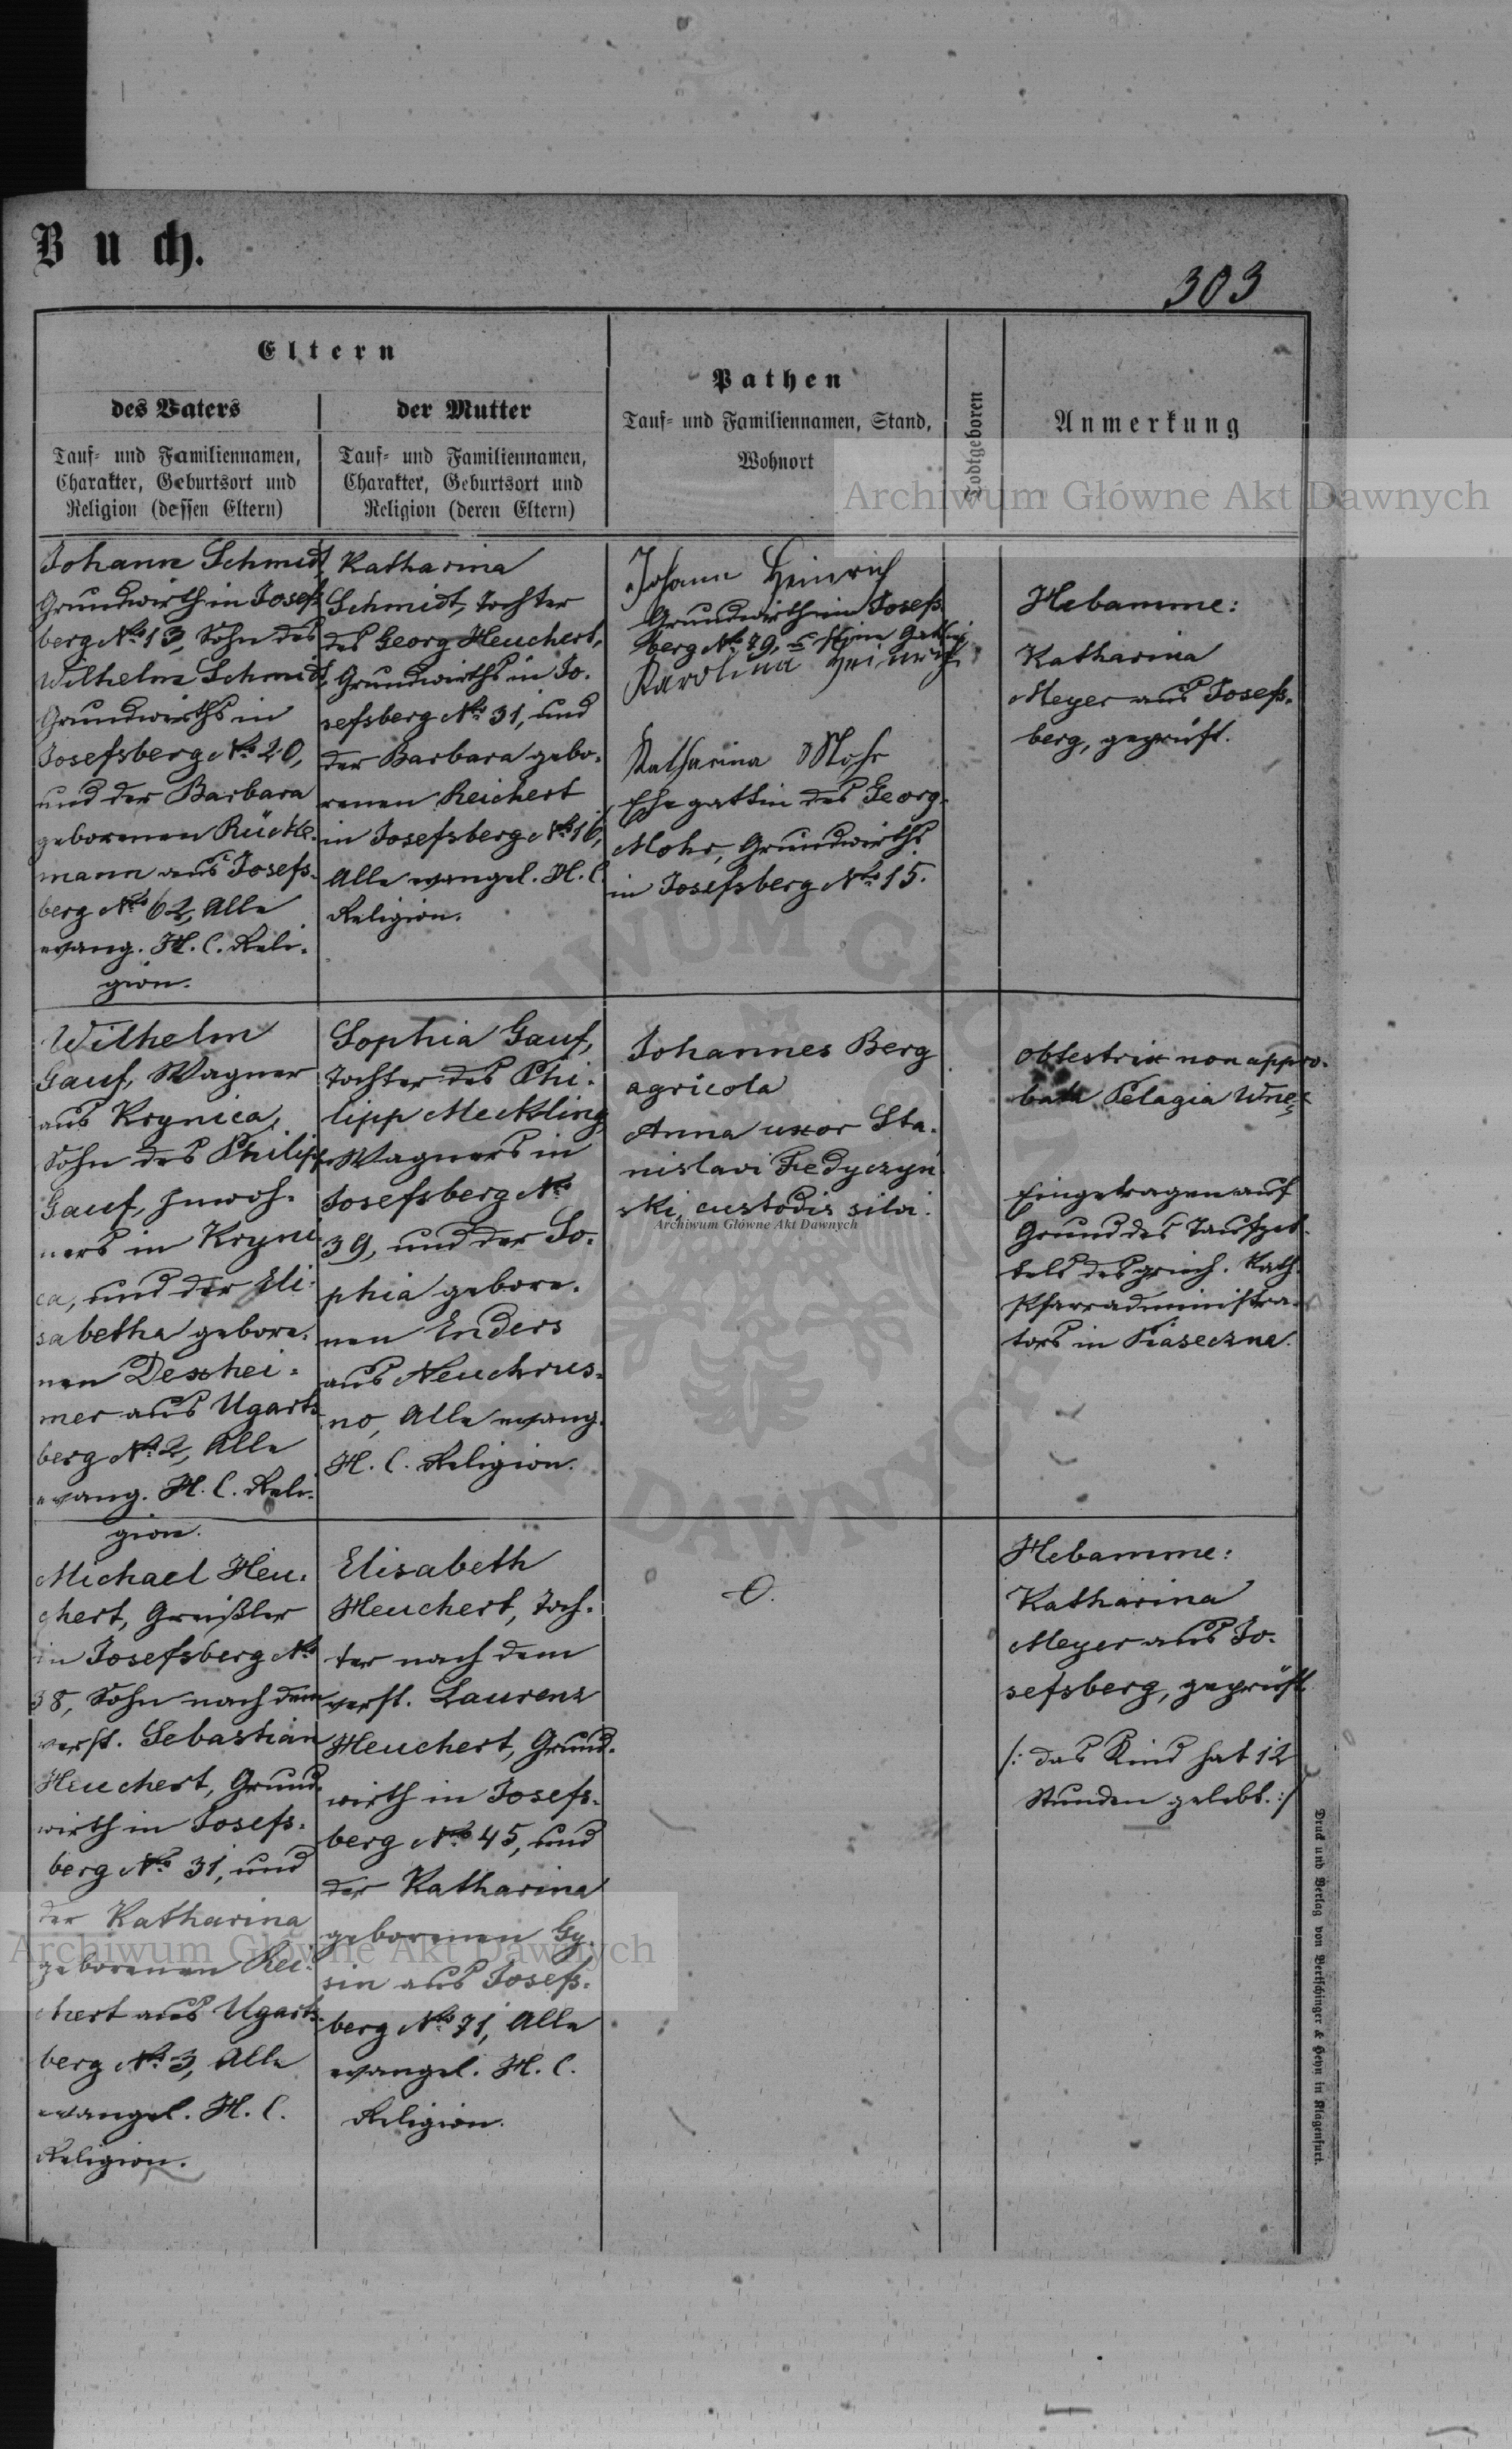 Buch.
303
Eltern
des Vaters
der Mutter
Tauf- und Familiennamen,
Charakter, Geburtsort und
Religion (dessen Eltern)
Tauf- und Familiennamen,
Charakter, Geburtsort und
Religion (deren Eltern)
Pathen
Tauf- und Familiennamen, Stand,
Wohnort
Todtgeboren
Anmerkung
Archiwum Główne Akt Dawnych
Johann Schmidt,
Grundwirth in Josefs-
berg No 13, Sohn des
Wilhelm Schmidt,
Grundwirths in
Josefsberg No 20,
und der Barbara
geborenen Rückle-
mann aus Josefs-
berg No 62, Alle
evang. H. C. Reli-
gion.
Katharina
Schmidt, Tochter
des Georg Heuchert,
Grundwirths in Jo-
sefsberg No 31, und
der Barbara gebo-
renen Reichert
in Josefsberg No 16,
Alle evangel. H. C.
Religion.
Johann Heinrich
Grundwirth in Josefs-
berg No 79, seine Gattin
Karolina Heinrich
Katharina Mohr
Ehegattin des Georg
Mohr, Grundwirths
in Josefsberg No 15.
Hebamme:
Katharina
Meyer aus Josefs-
berg, geprüft.
Wilhelm
Gauf, Wagner
aus Krynica,
Sohn des Philipp
Gauf, Inwoh-
ners in Kryni-
ca, und der Eli-
sabetha gebore-
nen Dexhei-
mer aus Ugarts-
berg No 2, Alle
evang. H. C. Reli-
gion.
Sophia Gauf,
Tochter des Phi-
lipp Meckling,
Wagners in
Josefsberg No
39, und der So-
phia gebore-
nen Enders
aus Neuchrus-
no, Alle evang.
H. C. Religion.
Johannes Berg
agricola
Anna uxor Sta-
nislavi Fedyczyń
ski, custodis silvi.
Archiwum Główne Akt Dawnych
Obstetrix non appro-
bata Pelagia
Eingetragen auf
Grund des Taufzet-
tels des griech. Kath.
Pfarradministra-
tors in Piaseczna.
Michael Heu-
chert, Greißler
in Josefsberg No
38, Sohn nach dem
verst. Sebastian
Heuchert, Grund-
wirth in Josefs-
berg No 31, und
der Katharina
geborenen Rei-
chert aus Ugarts-
berg No 3, Alle
evangel. H. C.
Religion.
Elisabeth
Heuchert, Toch-
ter nach dem
verst. Laurenz
Heuchert, Grund-
wirth in Josefs-
berg No 45, und
der Katharina
geborenen Gy-
sin aus Josefs-
berg No 71, Alle
evangel. H. C.
Religion.
O.
Hebamme:
Katharina
Meyer aus Jo-
sefsberg, geprüft.
/: das Kind hat 12
Stunden gelebt. :/
Archiwum Główne Akt Dawnych
Druck und Verlag von Bertschinger & Heyn in Klagenfurt.
ARCHIWUM GŁÓWNE AKT DAWNYCH